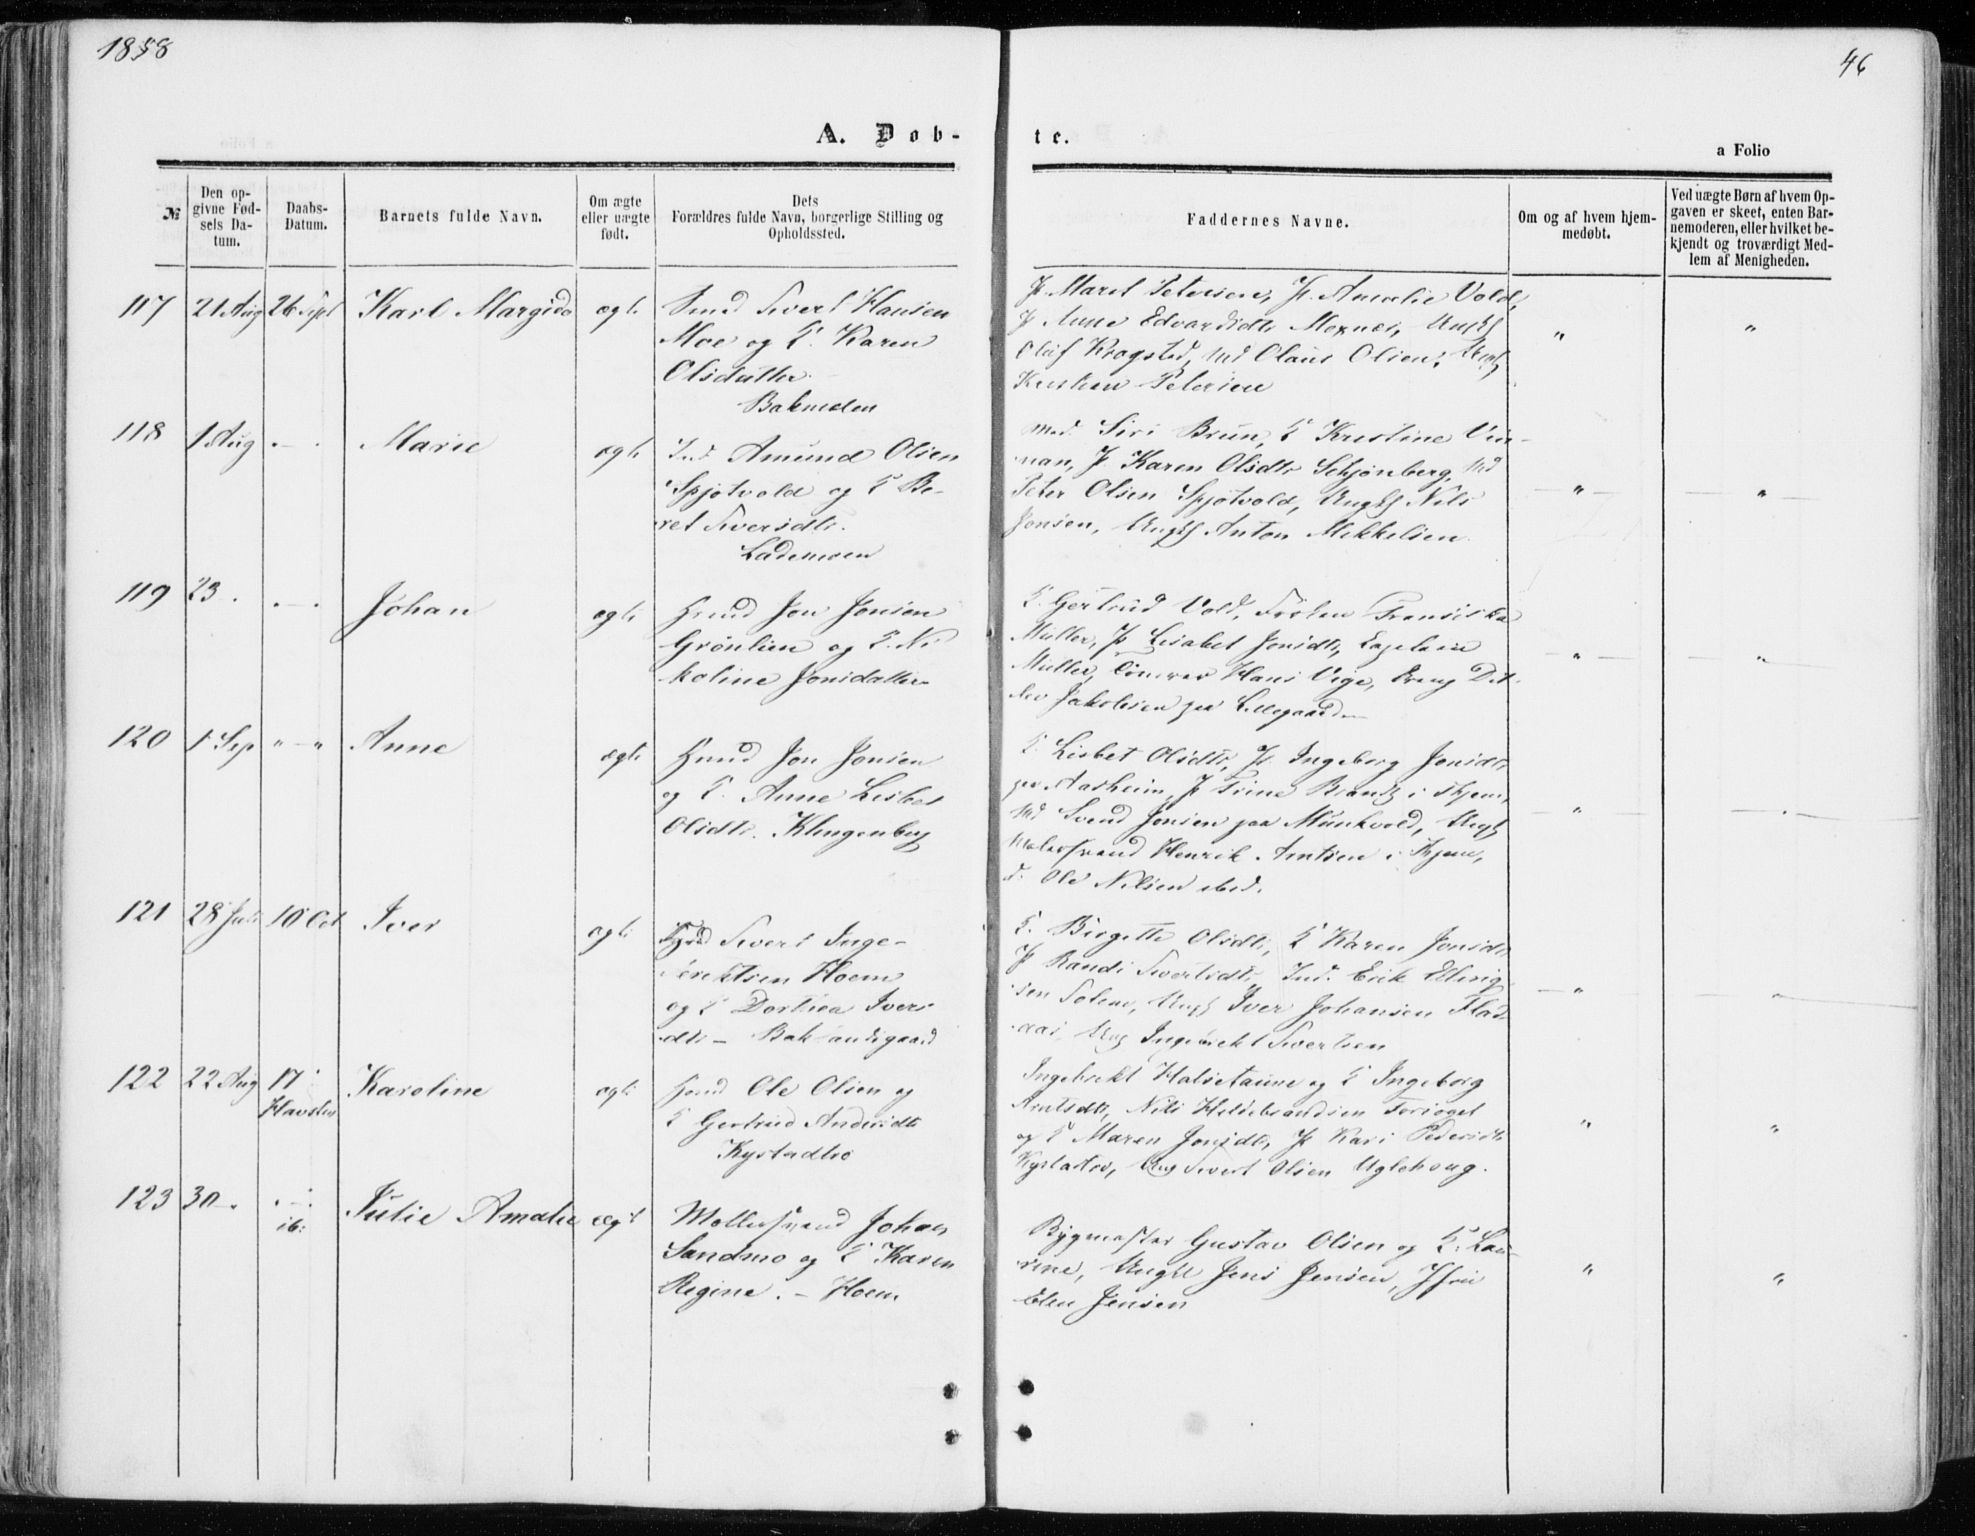 1858
46
A. Døb-
te.
a Folio
№
Den op-
givne Fød-
sels Da-
tum.
Daabs-
Datum.
Barnets fulde Navn.
Om ægte
eller uægte
født.
Dets
Forældres fulde Navn, borgerlige Stilling og
Opholdssted.
Faddernes Navne.
Om og af hvem hjem-
medøbt.
Ved uægte Børn af hvem Op-
gaven er skeet, enten Bar-
nemoderen, eller hvilket be-
kjendt og troværdigt Med-
lem af Menigheden.
117 21 Aug 26 Sept Karl Margido ægte
Smed Sivert Hansen
Moe og K. Karen
Olsdatter.
Bakneden
P. Maret Petersen, P. Amalie Vold,
P Anne Edvardsdtr Moxnes, Ungk
Olaf Krogsted, Md Olaus Olsen, Ungk
Kristian Petersen
118 1 Aug Marie ægte
Ind. Amund Olsen
Spjøtvold og K Be-
ret Siversdtr.
Lademoen
Mad. Siri Brun, K Kristine Vin-
nan, P Karen Olsdtr Schjønberg, Md
Peter Olsen Spjøtvold, Ungk Nils
Jonsen, Ungk Anton Mikkelsen.
119 23. Johan ægte
Hmd Jon Jonsen
Grønlien og K. Ni-
koline Jonsdatter
K. Gertrud Vold, Frøken Fransiska
Müller, P Lisabet Jonsdtr, Kaptein
Müller, Tømrer Hans Vige, Dreng Det-
lev Jakobsen paa Lillegaard
120 1 Sep Anne ægte
Hmd Jon Jonsen
og K. Anne Lisbet
Olsdtr. Klingenberg
K. Lisbet Olsdtr, P Ingeborg Jonsdtr
paa Aasheim, P Trine Brandt i Thjem,
Md Svend Jonsen paa Munkvold, Ungk
Malersvend Henrik Arntsen i Thjem,
d. Ole Nilsen ibid.
121 28 Juli 10 Oct Iver ægte
Sivert Inge-
brektsen Hoem
og K Dorthea Ivers-
dtr – Baklandsgaard
K. Birgitte Olsdtr, K Karen Jonsdtr
P Randi Sivertsdtr, Ind. Erik Elling-
sen Solem, Ungk Iver Johansen Flad-
aas, Ung Ingebrekt Sivertsen
122 22 Aug 17 Karoline ægte
Havstein
Hmd Ole Olsen og
K Gertrud Andersdtr
Kystadtrø
Ingebrekt Halsetaune og K Ingeborg
Arntsdtr, Nils Hildebrandsen Forsøget
og K Maren Jonsdtr, P Kari Pedersdtr
Kystadtrø, Ung Sivert Olsen Uglehoug.
123 30 Julie Amalie ægte
ib:
Møllersvend Johan
Sandmo og K Karen
Regine. – Hoem
Bygmester Gustav Olsen og K. Lau-
rine, Ungk Jens Jensen, Jfru
Elen Jensen